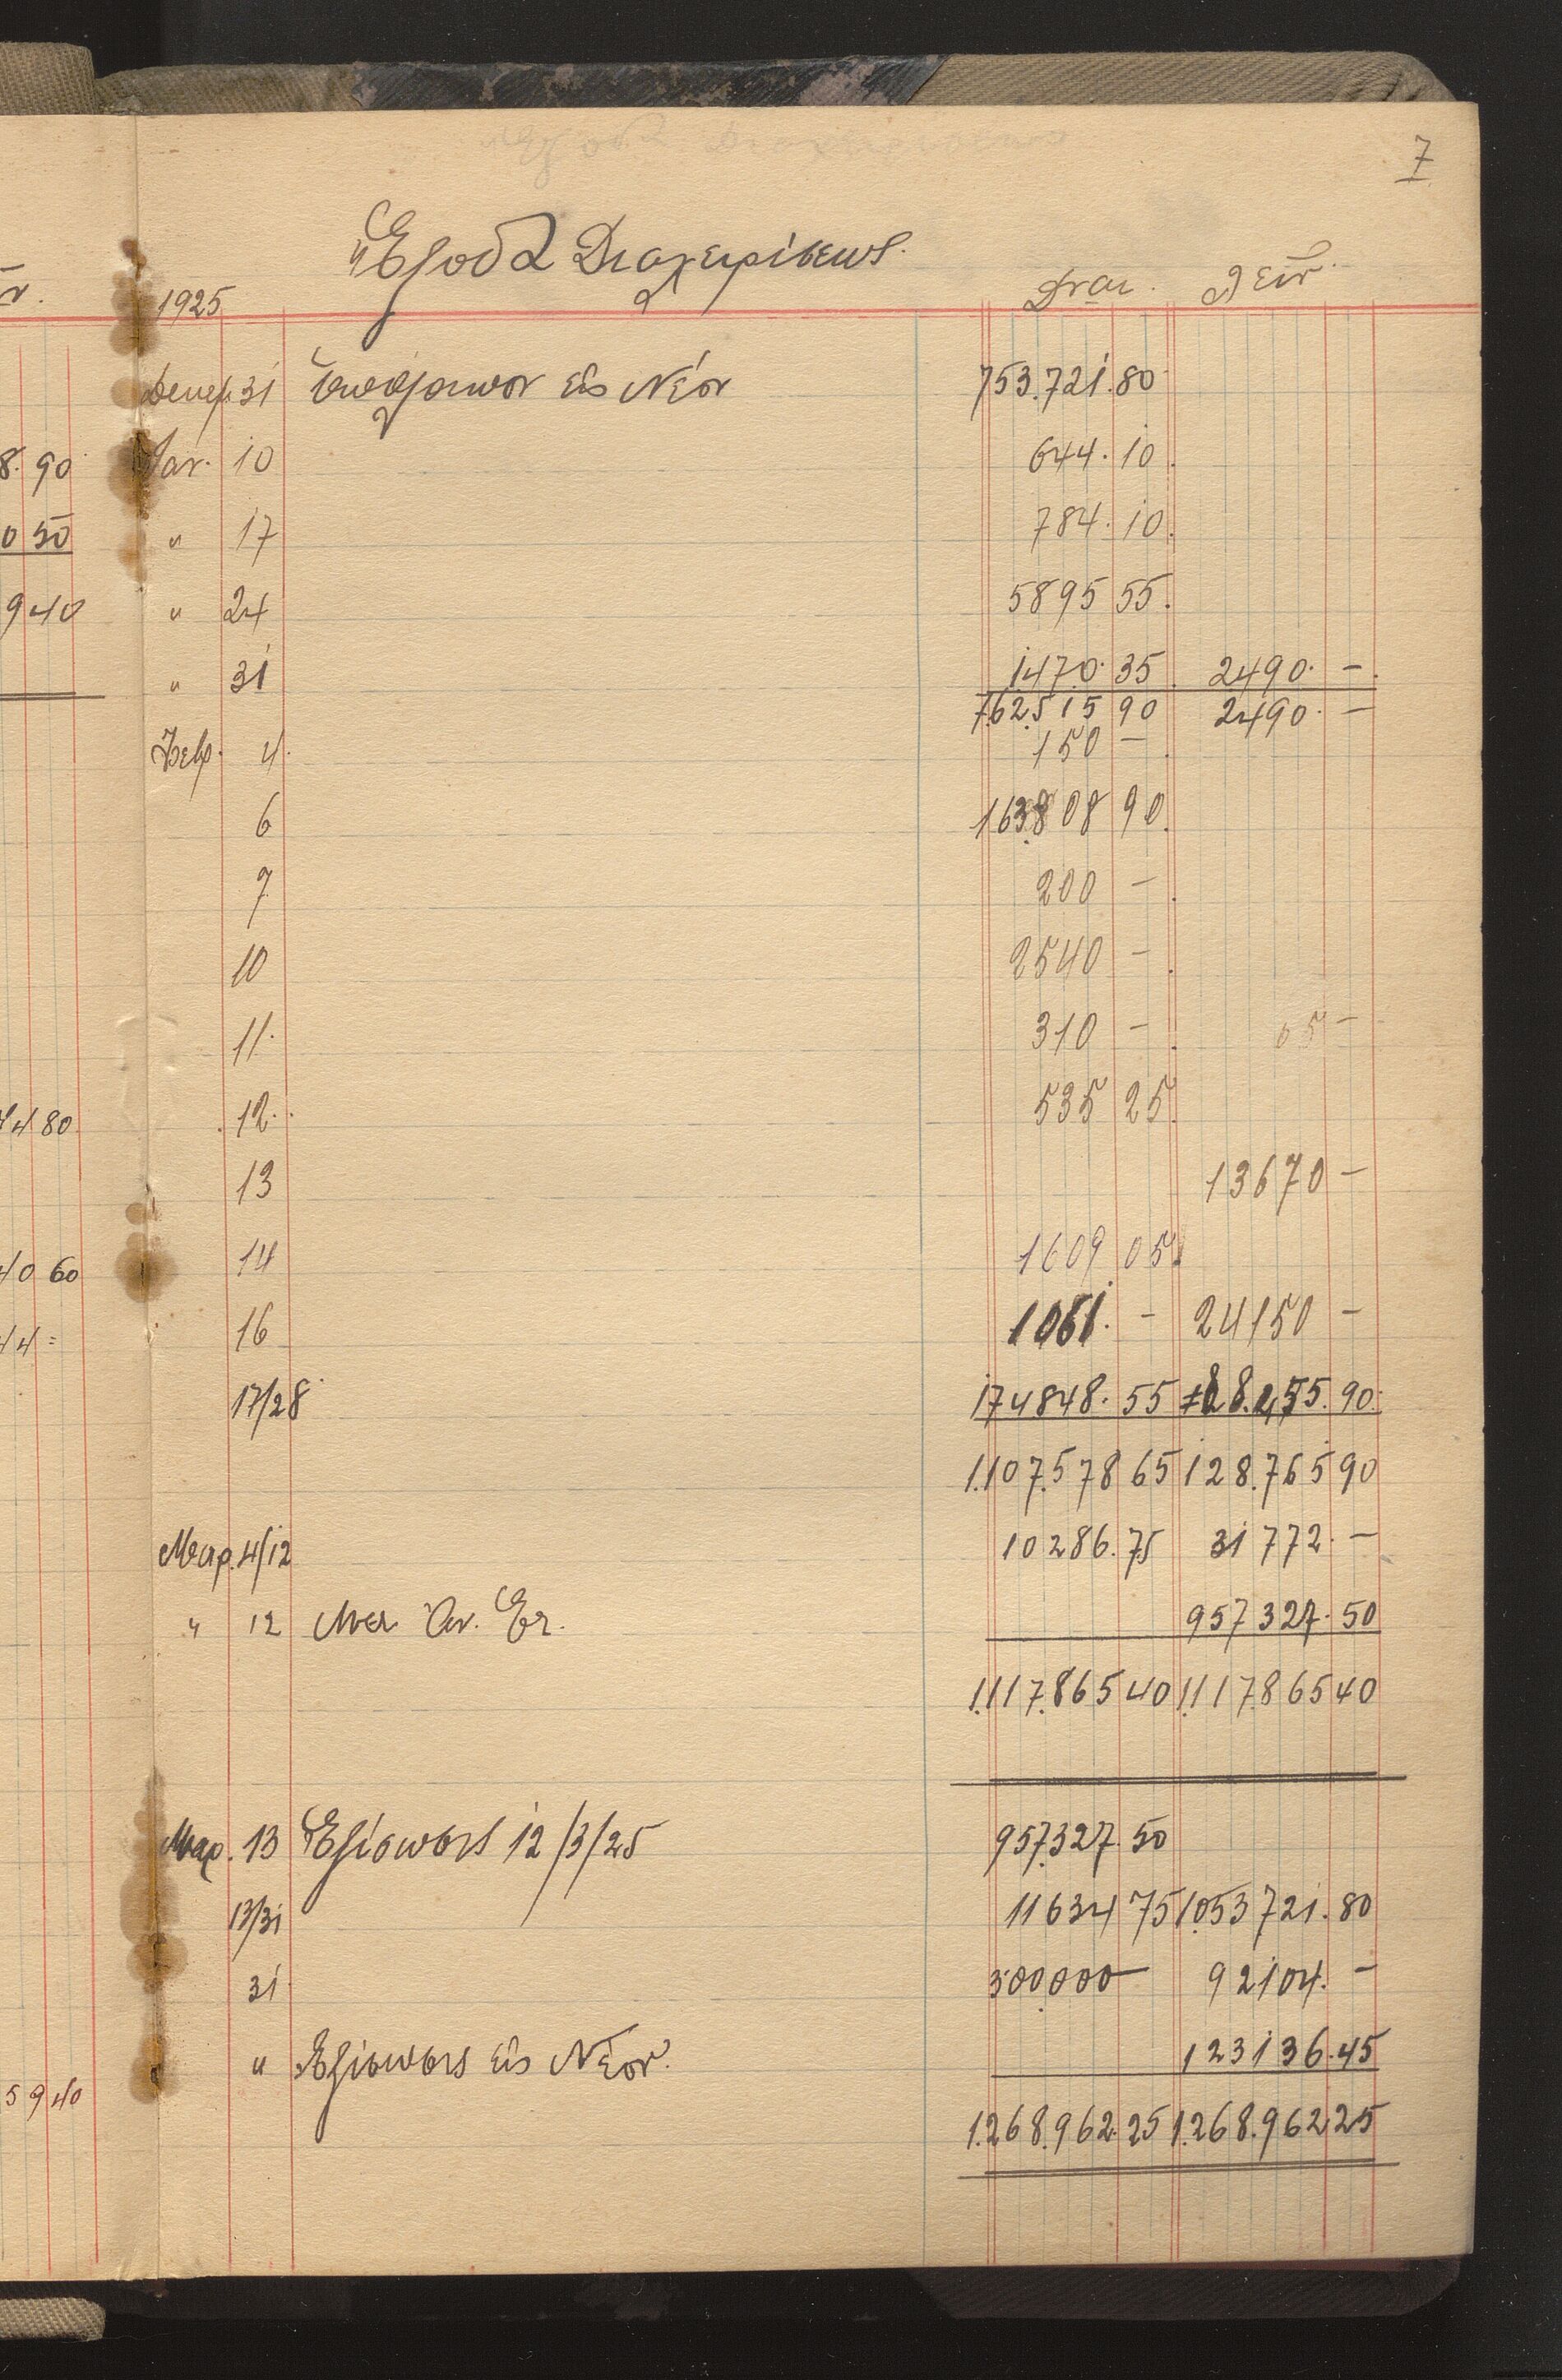 7
Ἔξοδα Διαχειρίσεως.
1925 Δναι. Λεῖν.
Δεκεμ. 31 Ὑπόλοιπον εἰς Νέον 753.721.80
Ἰαν. 10 644.10
" 17 784.10
" 24 5895 55
" 31 1470.35 2490.—
762515 90 2490.—
Φεβρ. 4 150 —
6 163808 90
7 200 —
10 2540 —
11 310 — 05 —
12 535 25
13 13670 —
14 1609 05
16 1061.— 24150 —
17/28 174848.55 88.455.90
1.107.578 65 128.765 90
Μαρ. 4/12 10286.75 31772.—
" 12 957327.50
1.117.865 40 1.117865 40
Μαρ. 13 Ἐξίσωσις 12/3/25 957.327 50
13/31 11634 75 1.053721.80
31 300,000 — 92104.—
" Ἐξίσωσις εἰς Νέον. 123136.45
1.268.962.25 1.268.962 25
8.90
0 50
940
44 80
40 60
44 =
5940